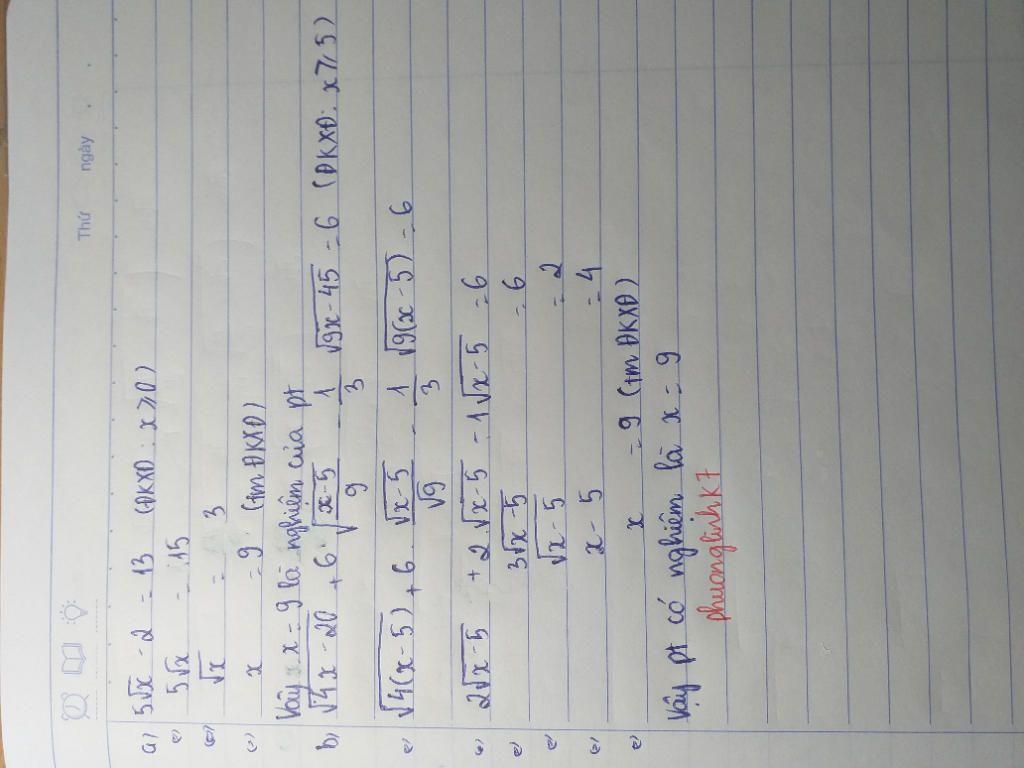 Thứ ngày
a) 5√x - 2 = 13 (ĐKXĐ: x ≥ 0)
(=) 5√x = 15
(=) √x = 3
(=) x = 9 (tm ĐKXĐ)
Vậy x = 9 là nghiệm của pt
b) √(4x - 20) + 6 . √((x-5)/9) - 1/3 √(9x - 45) = 6 (ĐKXĐ: x ≥ 5)
(=) √(4(x-5)) + 6 . √(x-5)/√9 - 1/3 √(9(x-5)) = 6
(=) 2√(x-5) + 2.√(x-5) - 1√(x-5) = 6
(=) 3√(x-5) = 6
(=) √(x-5) = 2
(=) x - 5 = 4
(=) x = 9 (tm ĐKXĐ)
Vậy pt có nghiệm là x = 9
phuonglinhk7